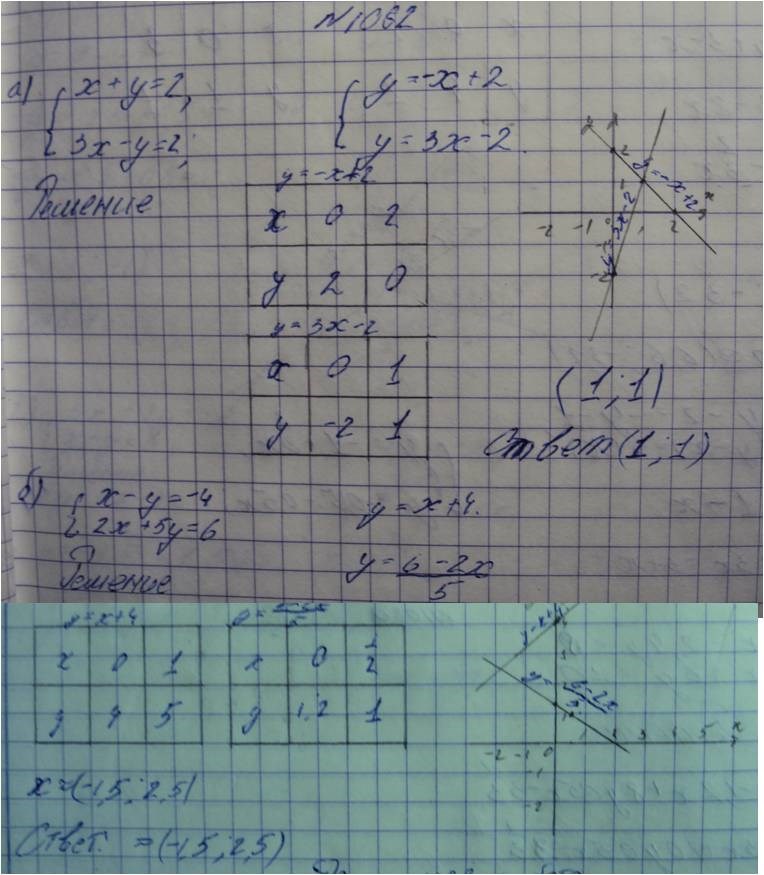 №1062
а) { x + y = 2,
3x - y = 2;
{ y = -x + 2
y = 3x - 2.
Решение
y = -x + 2
x 0 2
y 2 0
y = 3x - 2
x 0 1
y -2 1
y = -x + 2
y = 3x - 2
x
2
-2 -1 2
-2
(1; 1)
Ответ (1; 1)
б) { x - y = -4
2x + 5y = 6
y = x + 4.
y = 6 - 2x
5
Решение
y = x + 4
x 0 1
y 4 5
x 0 1/2
y 1,2 1
y = x + 4
y = 6 - 2x
5
-2 -1 0 3 4 5 x
-1
-2
x = (-1,5; 2,5)
Ответ. = (-1,5; 2,5)